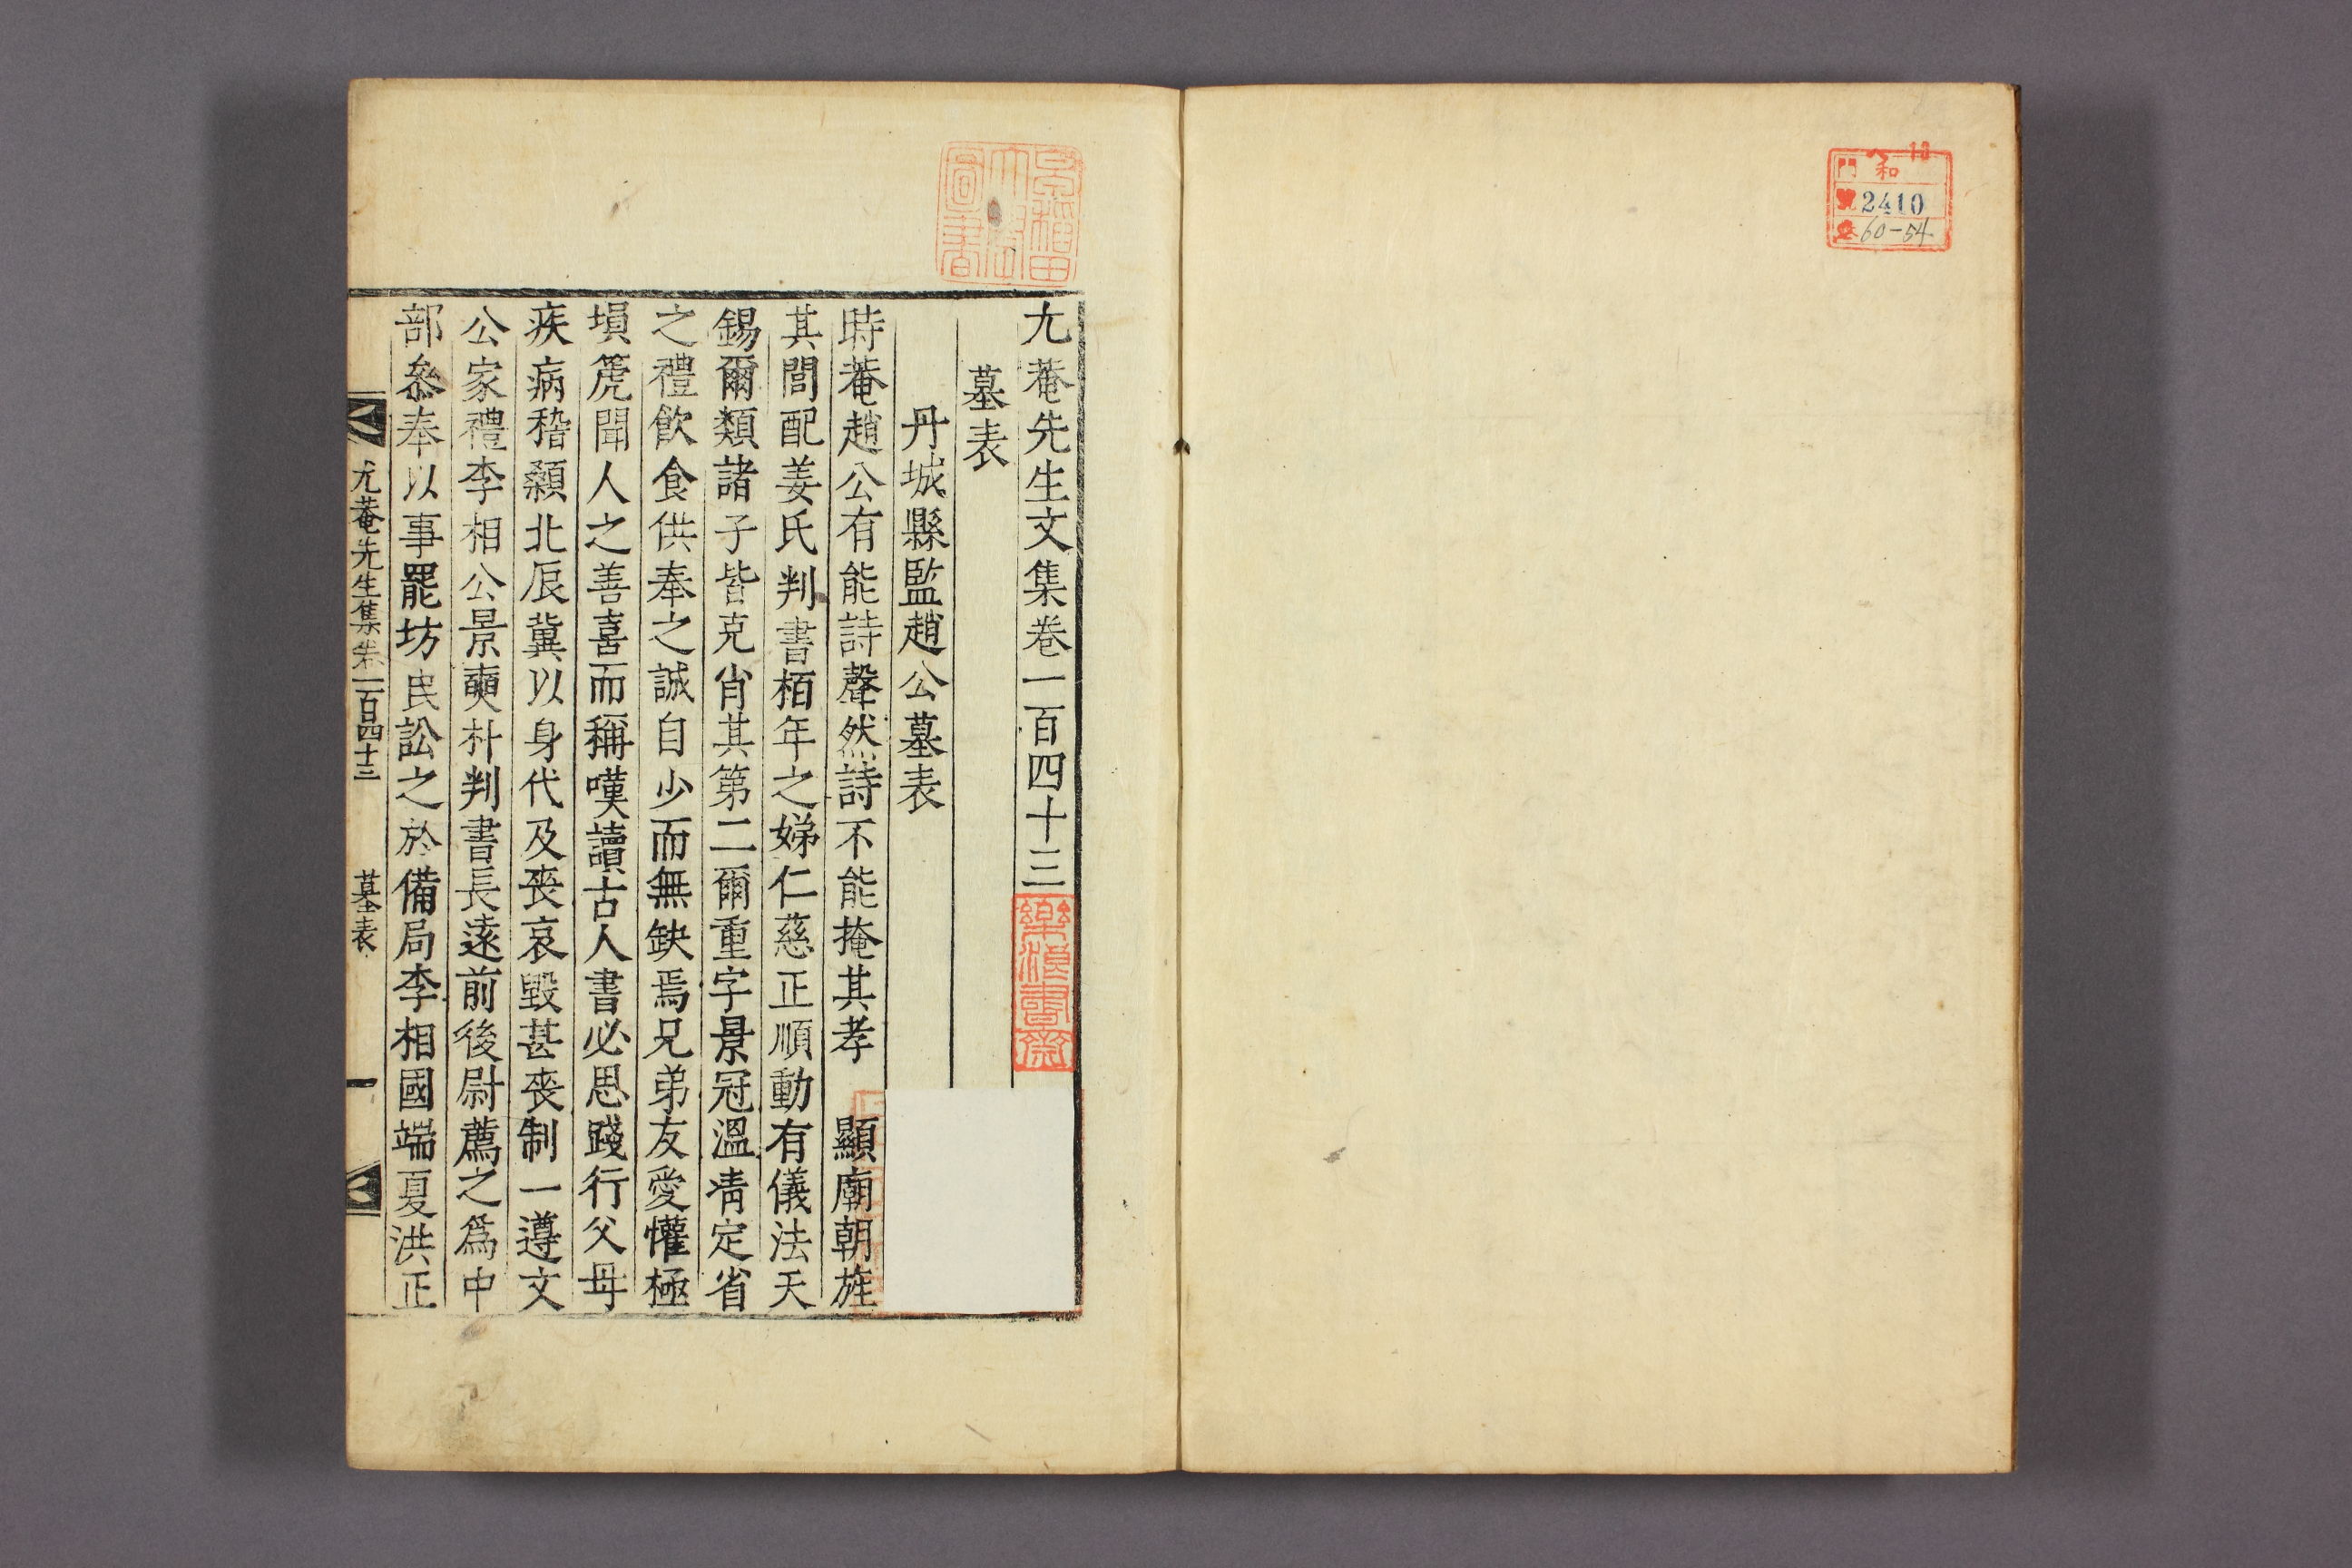 門 和
號 2410
卷 60-54
早稻田大學圖書
尤菴先生文集卷一百四十三
樂浪書齋
墓表
丹城縣監趙公墓表
時菴趙公有能詩聲然詩不能掩其孝 顯廟朝旌
其閭配姜氏判書栢年之娣仁慈正順動有儀法天
錫爾類諸子皆克肖其第二爾重字景冠溫凊定省
之禮飮食供奉之誠自少而無缺焉兄弟友愛懽極
塤篪聞人之善喜而稱嘆讀古人書必思踐行父母
疾病稽顙北辰冀以身代及喪哀毀甚喪制一遵文
公家禮李相公景奭朴判書長遠前後尉薦之爲中
部參奉以事罷坊民訟之於備局李相國端夏洪正
尤菴先生集卷一百四十三 墓表 一